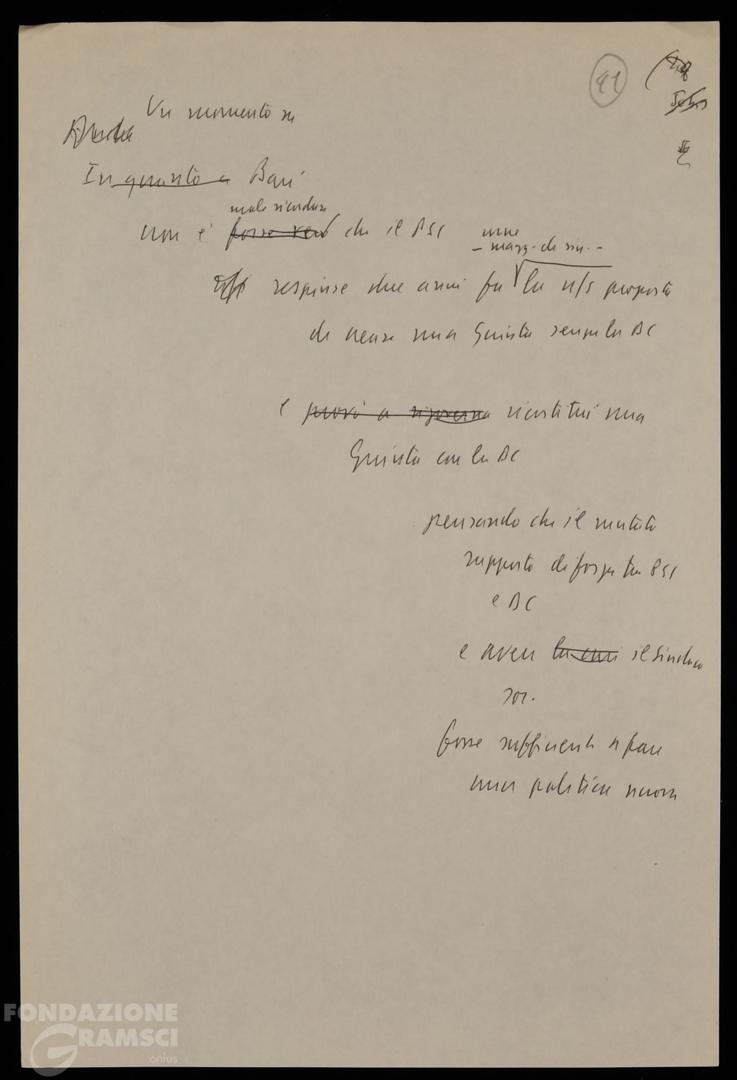 41
Un momento su
Anche
In quanto a Bari
male ricordare
non è forse vero che il PSI
– magg. di sin. –
respinse due anni fa la n/s proposta
di creare una Giunta senza la DC
e provò a rigoverna ricostituì una
Giunta con la DC
pensando che il mutato
rapporto di forza tra PSI
e DC
e aver il Sindaco
soc.
fosse sufficiente a fare
una politica nuova
FONDAZIONE
GRAMSCI
onlus